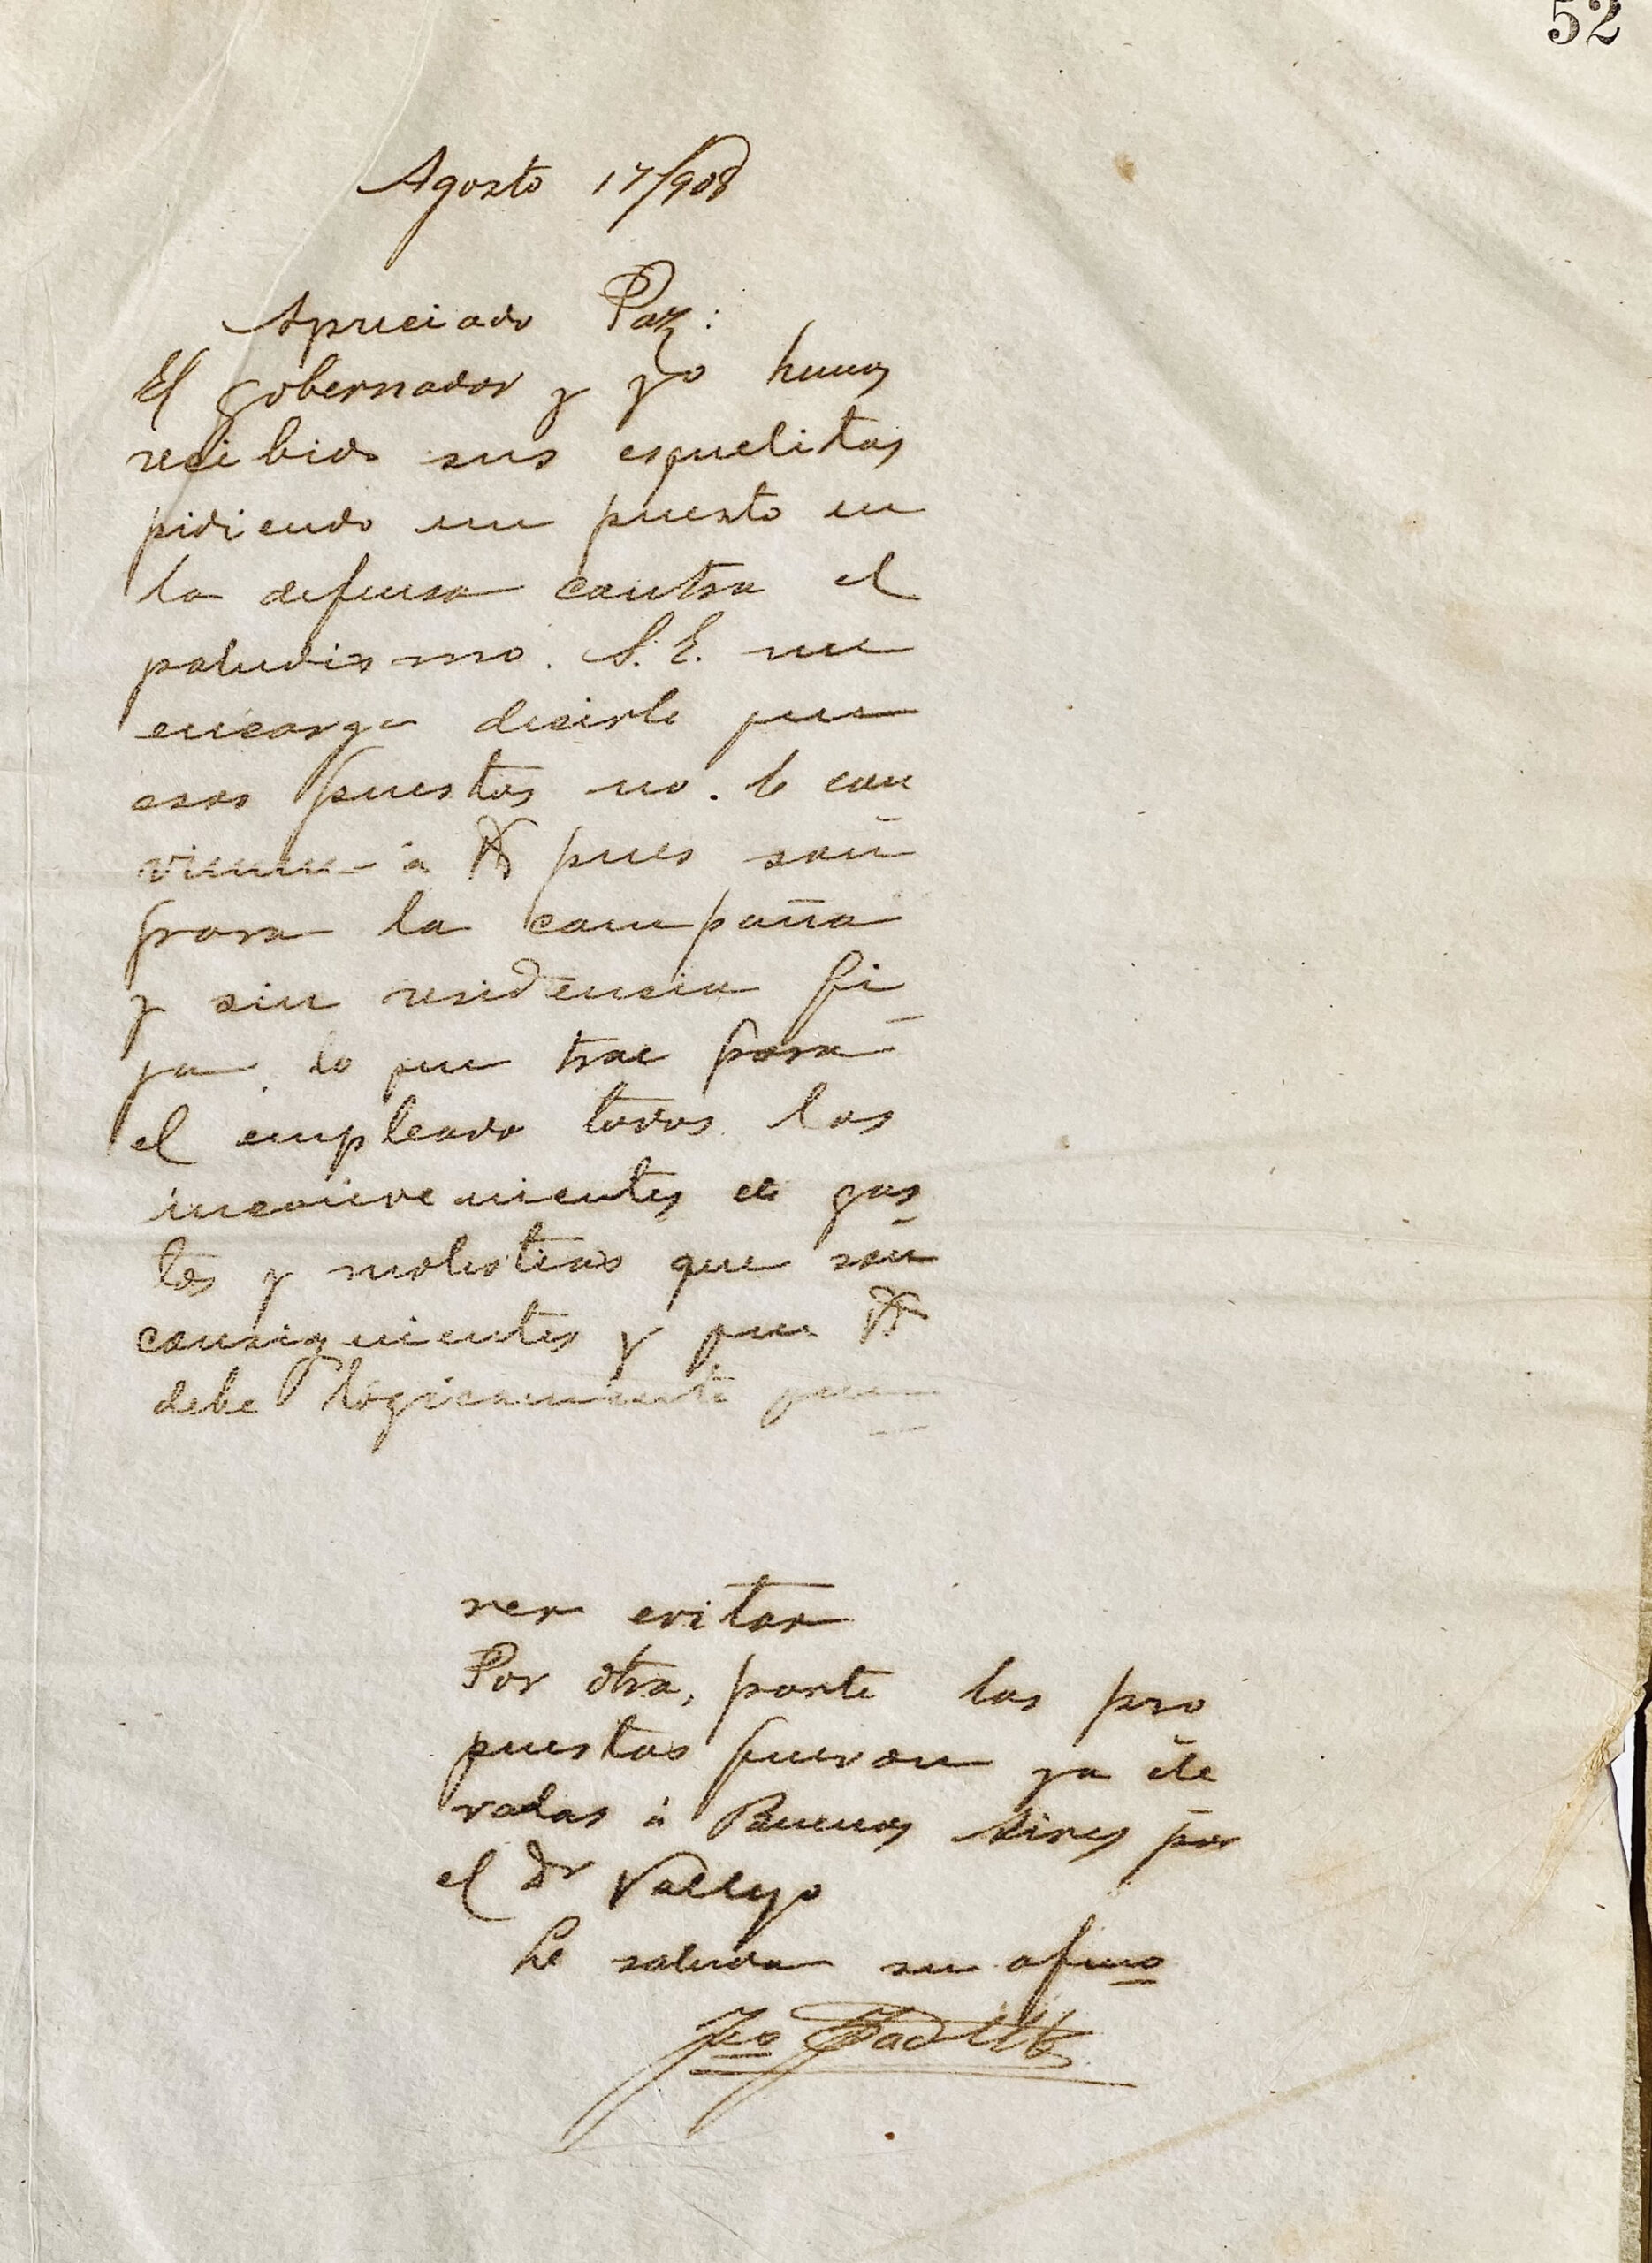 52
Agosto 17/908
Apreciado Paz:
El gobernador y yo hemos
recibido sus esquelitas
pidiendo un puesto en
la defensa contra el
paludismo. S. E. me
encarga decirle que
esos puestos no le con
vienen á Vd pues son
para la campaña
y sin residensia fi
ja lo que trae para
el empleado todos los
inconvenientes de gas
tos y molestias que son
consiguientes y que Vd
debe logicamente que
rer evitar
Por otra, parte las pro
puestas fueron ya ele
vadas á Buenos Aires por
el Dr Vallejo
Le saluda su afmo